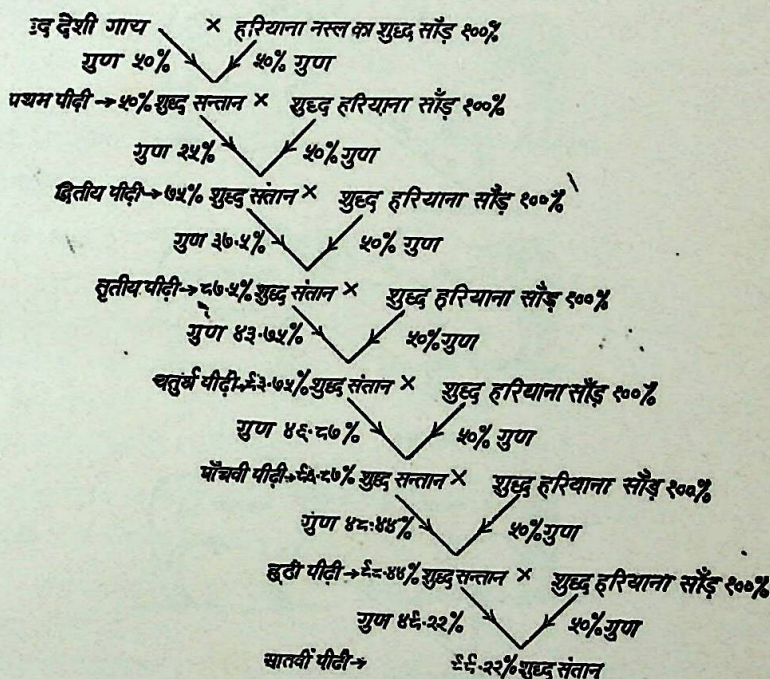 देशी गाय × हरियाना नस्ल का शुद्ध साँड़ १००%
गुण ५०% ५०% गुण
प्रथम पीढ़ी → ५०% शुद्ध सन्तान × शुद्ध हरियाना साँड़ १००%
गुण २५% ५०% गुण
द्वितीय पीढ़ी → ७५% शुद्ध संतान × शुद्ध हरियाना साँड़ १००%
गुण ३७.५% ५०% गुण
तृतीय पीढ़ी → ८७.५% शुद्ध संतान × शुद्ध हरियाना साँड़ १००%
गुण ४३.७५% ५०% गुण
चतुर्थ पीढ़ी → ९३.७५% शुद्ध संतान × शुद्ध हरियाना साँड़ १००%
गुण ४६.८७% ५०% गुण
पाँचवी पीढ़ी → ९६.८७% शुद्ध सन्तान × शुद्ध हरियाना साँड़ १००%
गुण ४८.४४% ५०% गुण
छठी पीढ़ी → ९८.४४% शुद्ध सन्तान × शुद्ध हरियाना साँड़ १००%
गुण ४९.२२% ५०% गुण
सातवीं पीढी → ९९.२२% शुद्ध संतान